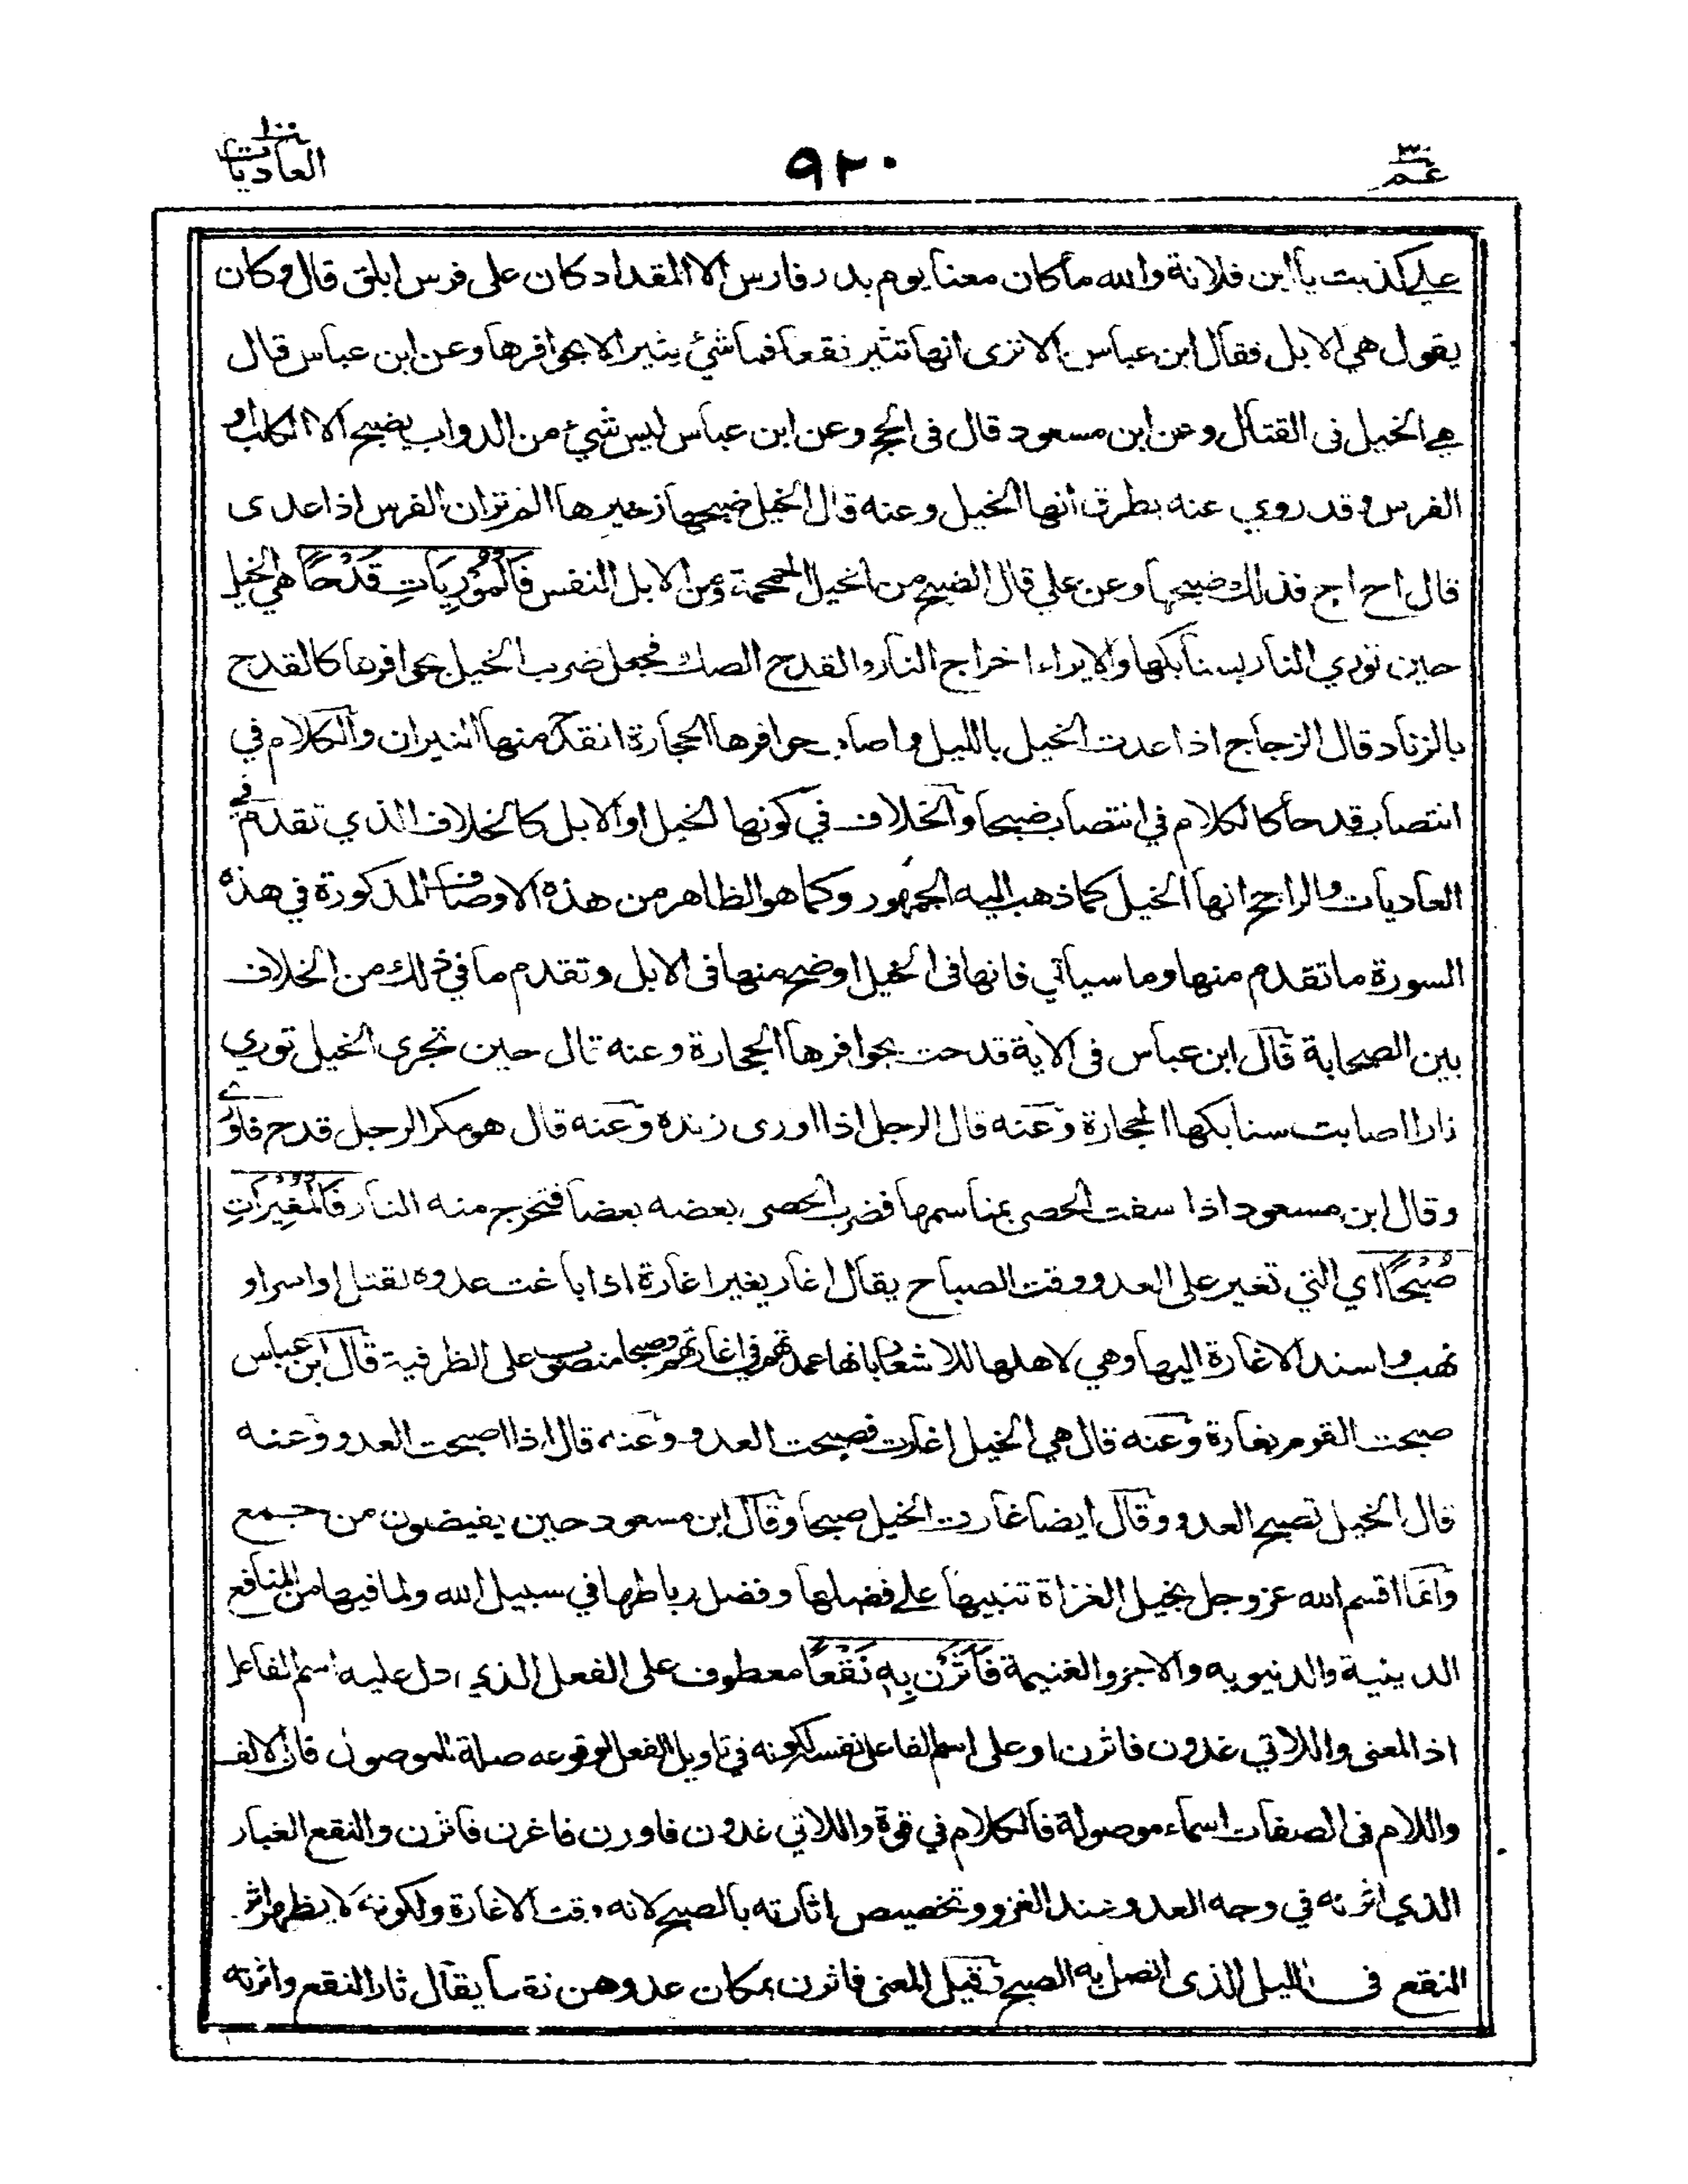 عم ٣٠
٩٢٠
العاديات ١٠٠
علي كذبت يا ابن فلانة والله ما كان معنا يوم بدر فارس الا المقداد كان على فرس ابلق قال وكان
يقول هي الابل فقال ابن عباس الا ترى انها تثير نقعا فما شئ يثير الا بحوافرها وعن ابن عباس قال
هي الخيل فى القتال وعن ابن مسعود قال فى الحج وعن ابن عباس ليس شئ من الدواب يضبح الا الكلب او
الفرس وقد روي عنه بطرق أنها الخيل وعنه قال الخيل ضبحها زحيرها الم تر ان الفرس اذا عدى
قال اح اح فذلك ضبحها وعن علي قال الضبح من الخيل الحمحمة ومن الابل النفس فَالْمُوْرِيَاتِ قَدْحًا هي الخيل
حين توري النار بسنابكها والايراء اخراج النار والقدح الصك فجعل ضرب الخيل بحوافرها كالقدح
بالزناد قال الزجاج اذا عدت الخيل بالليل واصاب حوافرها الحجارة انقدح منها النيران والكلام في
انتصاب قدحا كالكلام في انتصاب ضبحا والخلاف في كونها الخيل او الابل كالخلاف الذي تقدم في
العاديات والراجح انها الخيل كما ذهب اليه الجمهور وكما هو الظاهر من هذه الاوصاف المذكورة في هذه
السورة ما تقدم منها وما سيأتي فانها فى الخيل اوضح منها فى الابل وتقدم ما في ذلك من الخلاف
بين الصحابة قال ابن عباس فى الاية قدحت بحوافرها الحجارة وعنه قال حين تجرى الخيل توري
نارا اصابت سنابكها الحجارة وعنه قال الرجل اذا اورى زنده وعنه قال هو مكر الرجل قدح فاورى
وقال ابن مسعود اذا سفت الحصى بمناسمها فضرب الحصى بعضه بعضا فتخرج منه النار فَالْمُغِيْرَاتِ
صُبْحًا اي التي تغير على العدو وقت الصباح يقال اغار يغير اغارة اذا باغت عدوه لقتل او اسر او
نهب واسند الاغارة اليها وهي لاهلها للاشعار بانها عمدتهم في اغارتهم وصبحا منصوب على الظرفية قال ابن عباس
صبحت القوم بغارة وعنه قال هي الخيل اغارت فصبحت العدو وعنه قال اذا اصبحت العدو وعنه
قال الخيل تصبح العدو وقال ايضا غارت الخيل صبحا وقال ابن مسعود حين يفيضون من جمع
وانما اقسم الله عز وجل بخيل الغزاة تنبيها على فضلها وفضل رباطها في سبيل الله ولما فيها من المنافع
الدينية والدنيويه والاجر والغنيمة فَاَثَرْنَ بِهٖ نَقْعًا معطوف على الفعل الذي دل عليه اسم الفاعل
اذ المعنى واللاتي غدون فاثرن او على اسم الفاعل نفسه لكونه في تاويل الفعل لوقوعه صلة للموصول فان الالف
واللام فى الصفات اسماء موصولة فالكلام في قوة واللاتي غدون فاورين فاغرن فاثرن والنقع الغبار
الذي اثرنه في وجه العدو عند الغزو وتخصيص اثارته بالصبح لانه وقت الاغارة ولكونه لا يظهر اثر
النقع فى الليل الذى اتصل به الصبح وقيل المعنى فاثرن بمكان عدوهن نقعا يقال ثار النقع واثرته